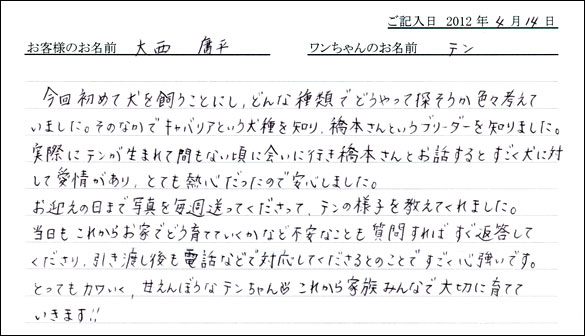 ご記入日 2012 年 4 月 14 日
お客様のお名前 大西 庸平 ワンちゃんのお名前 テン
今回初めて犬を飼うことにし、どんな種類でどうやって探そうか色々考えて
いました。そのなかでキャバリアという犬種を知り、橋本さんというブリーダーを知りました。
実際にテンが生まれて間もない頃に会いに行き橋本さんとお話するとすごく犬に対
して愛情があり、とても熱心だったので安心しました。
お迎えの日まで写真を毎週送ってくださって、テンの様子を教えてくれました。
当日もこれからお家でどう育てていくかなど不安なことも質問すればすぐ返答して
くださり、引き渡し後も電話などで対応してくださるとのことですごく心強いです。
とってもカワいく、甘えんぼうなテンちゃん♡これから家族みんなで大切に育てて
いきます!!